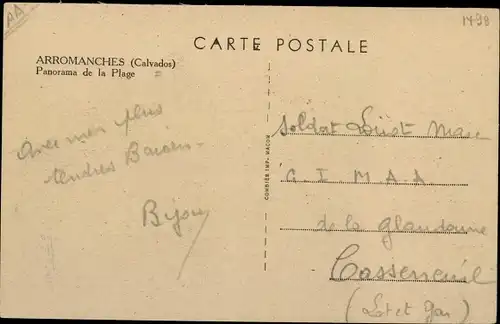 AA
14-98
CARTE POSTALE
ARROMANCHES (Calvados)
Panorama de la Plage =
Avec mon plus
tendres Baisers -
Bijou
COMBIER IMP. MACON
Soldat Marc
C I M A A
de la glandonne
Casseneuil
(Lot et Gar)